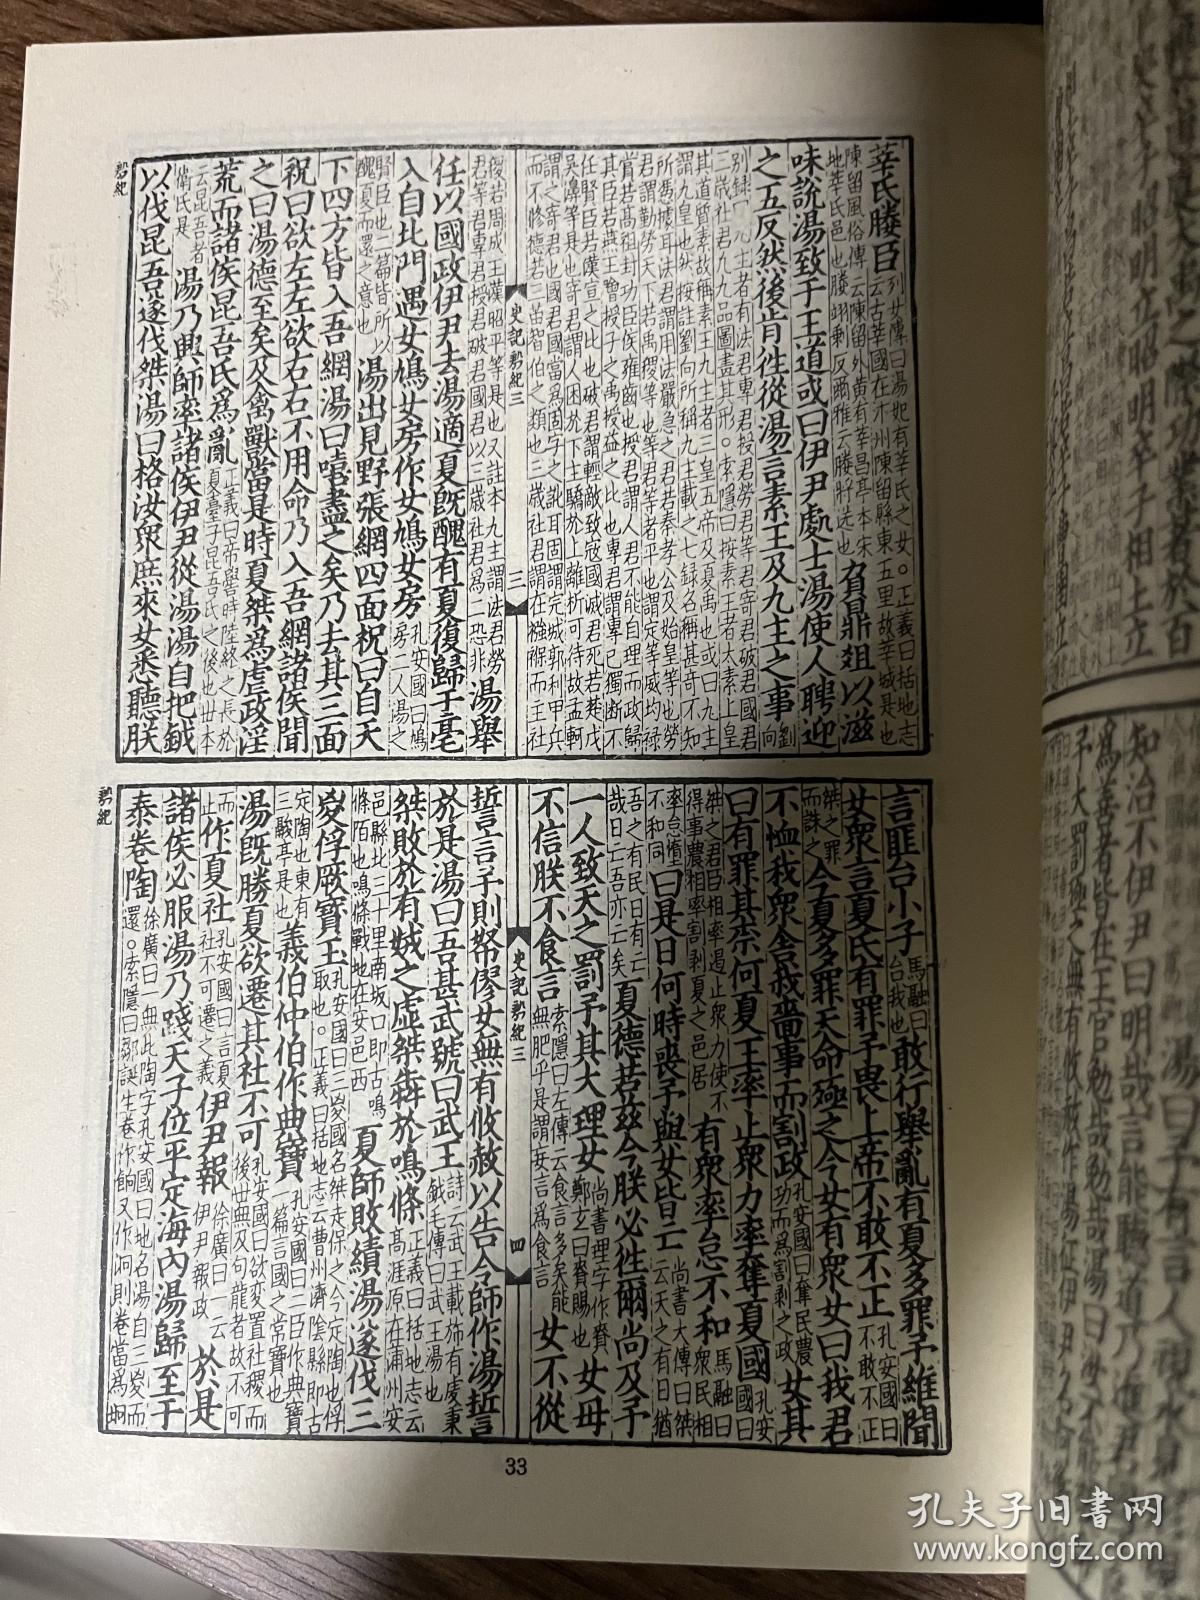 莘氏媵臣列女傳曰湯妃有莘氏之女。正義曰括地志云古莘國在汴州陳留縣東五里故莘城是也
陳留風俗傳云陳留外黃有莘昌亭本宋地莘氏邑也媵翊剩反爾雅云媵將送也負鼎俎以滋
味說湯致于王道或曰伊尹處士湯使人聘迎
之五反然後肯往從湯言素王及九主之事劉向
別錄曰九主者有法君專君授君勞君等君寄君破君國君三歲社君凡九品圖畫其形。索隱曰按素王者太素上皇
其道質素故稱素王九主者三皇五帝及夏禹也或曰九主謂九皇也然按註劉向所稱九主載之七錄名稱甚奇不知
所憑據耳法君謂用法嚴急之君若秦孝公及始皇等也勞君謂勤勞天下若禹稷等也等君等者平也謂定等威均祿
賞若高祖封功臣侯雍齒也授君謂人君不能自理而政歸其臣若燕王噲授子之禹授益之比也專君謂專己獨斷不
任賢臣若漢宣之比也破君謂輕敵致寇國滅君死若楚戊吳濞等是也寄君謂人困於下主驕於上離析可待故孟軻
謂之寄君也國君國當爲固字之訛耳固謂完城郭利甲兵而不修德若三苗智伯之類也三歲社君謂在襁褓而主社
史記殷紀三 三
稷若周成王漢昭平等是也又註本九主謂法君勞君等君專君授君破君國君以三歲社君爲二恐非湯舉
任以國政伊尹去湯適夏旣醜有夏復歸于亳
入自北門遇女鳩女房作女鳩女房孔安國曰鳩房二人湯之
賢臣也二篇皆所以醜夏而還之意也湯出見野張網四面祝曰自天
下四方皆入吾網湯曰嘻盡之矣乃去其三面
祝曰欲左左欲右右不用命乃入吾網諸侯聞
之曰湯德至矣及禽獸當是時夏桀爲虐政淫
荒而諸侯昆吾氏爲亂正義曰帝嚳時陸終之長於夏臺子昆吾氏之後也世本
云昆吾者衛氏是湯乃興師率諸侯伊尹從湯湯自把鉞
以伐昆吾遂伐桀湯曰格汝眾庶來女悉聽朕
殷紀
言匪台小子馬融曰台我也敢行舉亂有夏多罪予維聞
女眾言夏氏有罪予畏上帝不敢不正孔安國曰不敢不正
桀之罪而誅之今夏多罪天命殛之今女有眾女曰我君
不恤我眾舍我嗇事而割政孔安國曰奪民農功而爲割剝之政女其
曰有罪其柰何夏王率止眾力率奪夏國孔安國曰
桀之君臣相率遏止眾力使不得事農相率割剝夏之邑居有眾率怠不和馬融曰眾民相
率怠惰不和同曰是日何時喪予與女皆亡尚書大傳曰桀云天之有日猶
吾之有民日有亡哉日亡吾亦亡矣夏德若茲今朕必往爾尚及予
一人致天之罰予其大理女尚書理字作賚鄭玄曰賚賜也女毋
不信朕不食言索隱曰左傳云食言多矣能無肥乎是謂妄言爲食言女不從
史記殷紀三 四
誓言予則帑僇女無有攸赦以告令師作湯誓
於是湯曰吾甚武號曰武王詩云武王載斾有虔秉鉞毛傳曰武王湯也
桀敗於有娀之虛桀犇於鳴條正義曰括地志云高涯原在蒲州安
邑縣北三十里南坂口即古鳴條陌也鳴條戰地在安邑西夏師敗績湯遂伐三
㚇俘厥寶玉孔安國曰三㚇國名桀走保之今定陶也俘取也。正義曰括地志云曹州濟陰縣即古
定陶也東有三鬷亭是也義伯仲伯作典寶孔安國曰二臣作典寶一篇言國之常寶也
湯旣勝夏欲遷其社不可孔安國曰欲變置社稷而後世無及句龍者故不可
而止作夏社孔安國曰言夏社不可遷之義伊尹報徐廣曰一云伊尹報政於是
諸侯必服湯乃踐天子位平定海內湯歸至于
泰卷陶徐廣曰一無此陶字孔安國曰地名湯自三㚇而還。索隱曰鄒誕生卷作餉又作泂則卷當爲坰
殷紀
33
孔夫子旧书网
www.kongfz.com